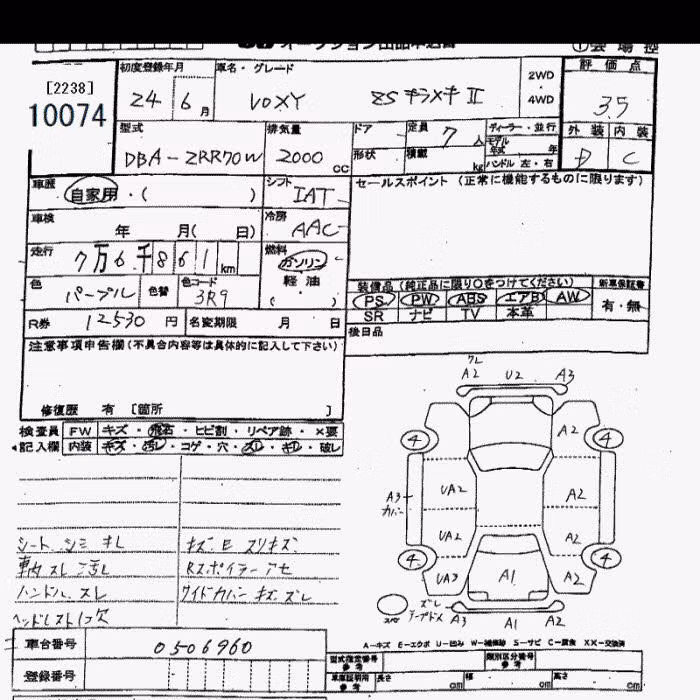 オークション出品申込書
① 会場控
[2238]
10074
初度登録年月
24 6月
車名・グレード
VOXY ZSキラメキⅡ
2WD・4WD
評価点
3.5
外装 内装
D C
型式
DBA-ZRR70W
排気量
2000 CC
ドア
形状
定員 7 人
積載 kg
ディーラー・並行
モデル年式 年
ハンドル 左・右
車歴
自家用・( )
シフト
IAT
セールスポイント (正常に機能するものに限ります)
車検
年 月( 日)
冷房
AAC
走行
7万6千861km
燃料
ガソリン
軽油
( )
色
パープル
色替
色コード
3R9
装備品(純正品に限り○をつけてください)
新車保証書
PS PW ABS エアB AW
有・無
SR ナビ TV 本革
R券 12530円
名変期限 月 日
後日品
注意事項申告欄(不具合内容等は具体的に記入して下さい)
修復歴 有 〔箇所 〕
検査員 FW キズ・飛石・ヒビ割・リペア跡・×要
記入欄 内装 キズ・汚レ・コゲ・穴・スレ・キレ・破レ
シート シミ キレ
キズ E スリキズ
車内 スレ 汚レ
Rスポイラー アセ
ハンドル スレ
サイドカバー キズ ズレ
ヘッドレスト1欠
ワレ
A2 U2 A3
4 A2 4
A3 カバー UA2 A2
UA2 A2
4 UA3 A1 A2 4
スペア
ズレ
テープドメ
A3 A1 A2
A-キズ E-エクボ U-凹み W-補修跡 S-サビ C-腐食 XX-交換済
車台番号 0506960
登録番号
型式指定番号 参考
類別区分番号 参考
車庫証明用 参考
長さ cm 幅 cm 高さ cm